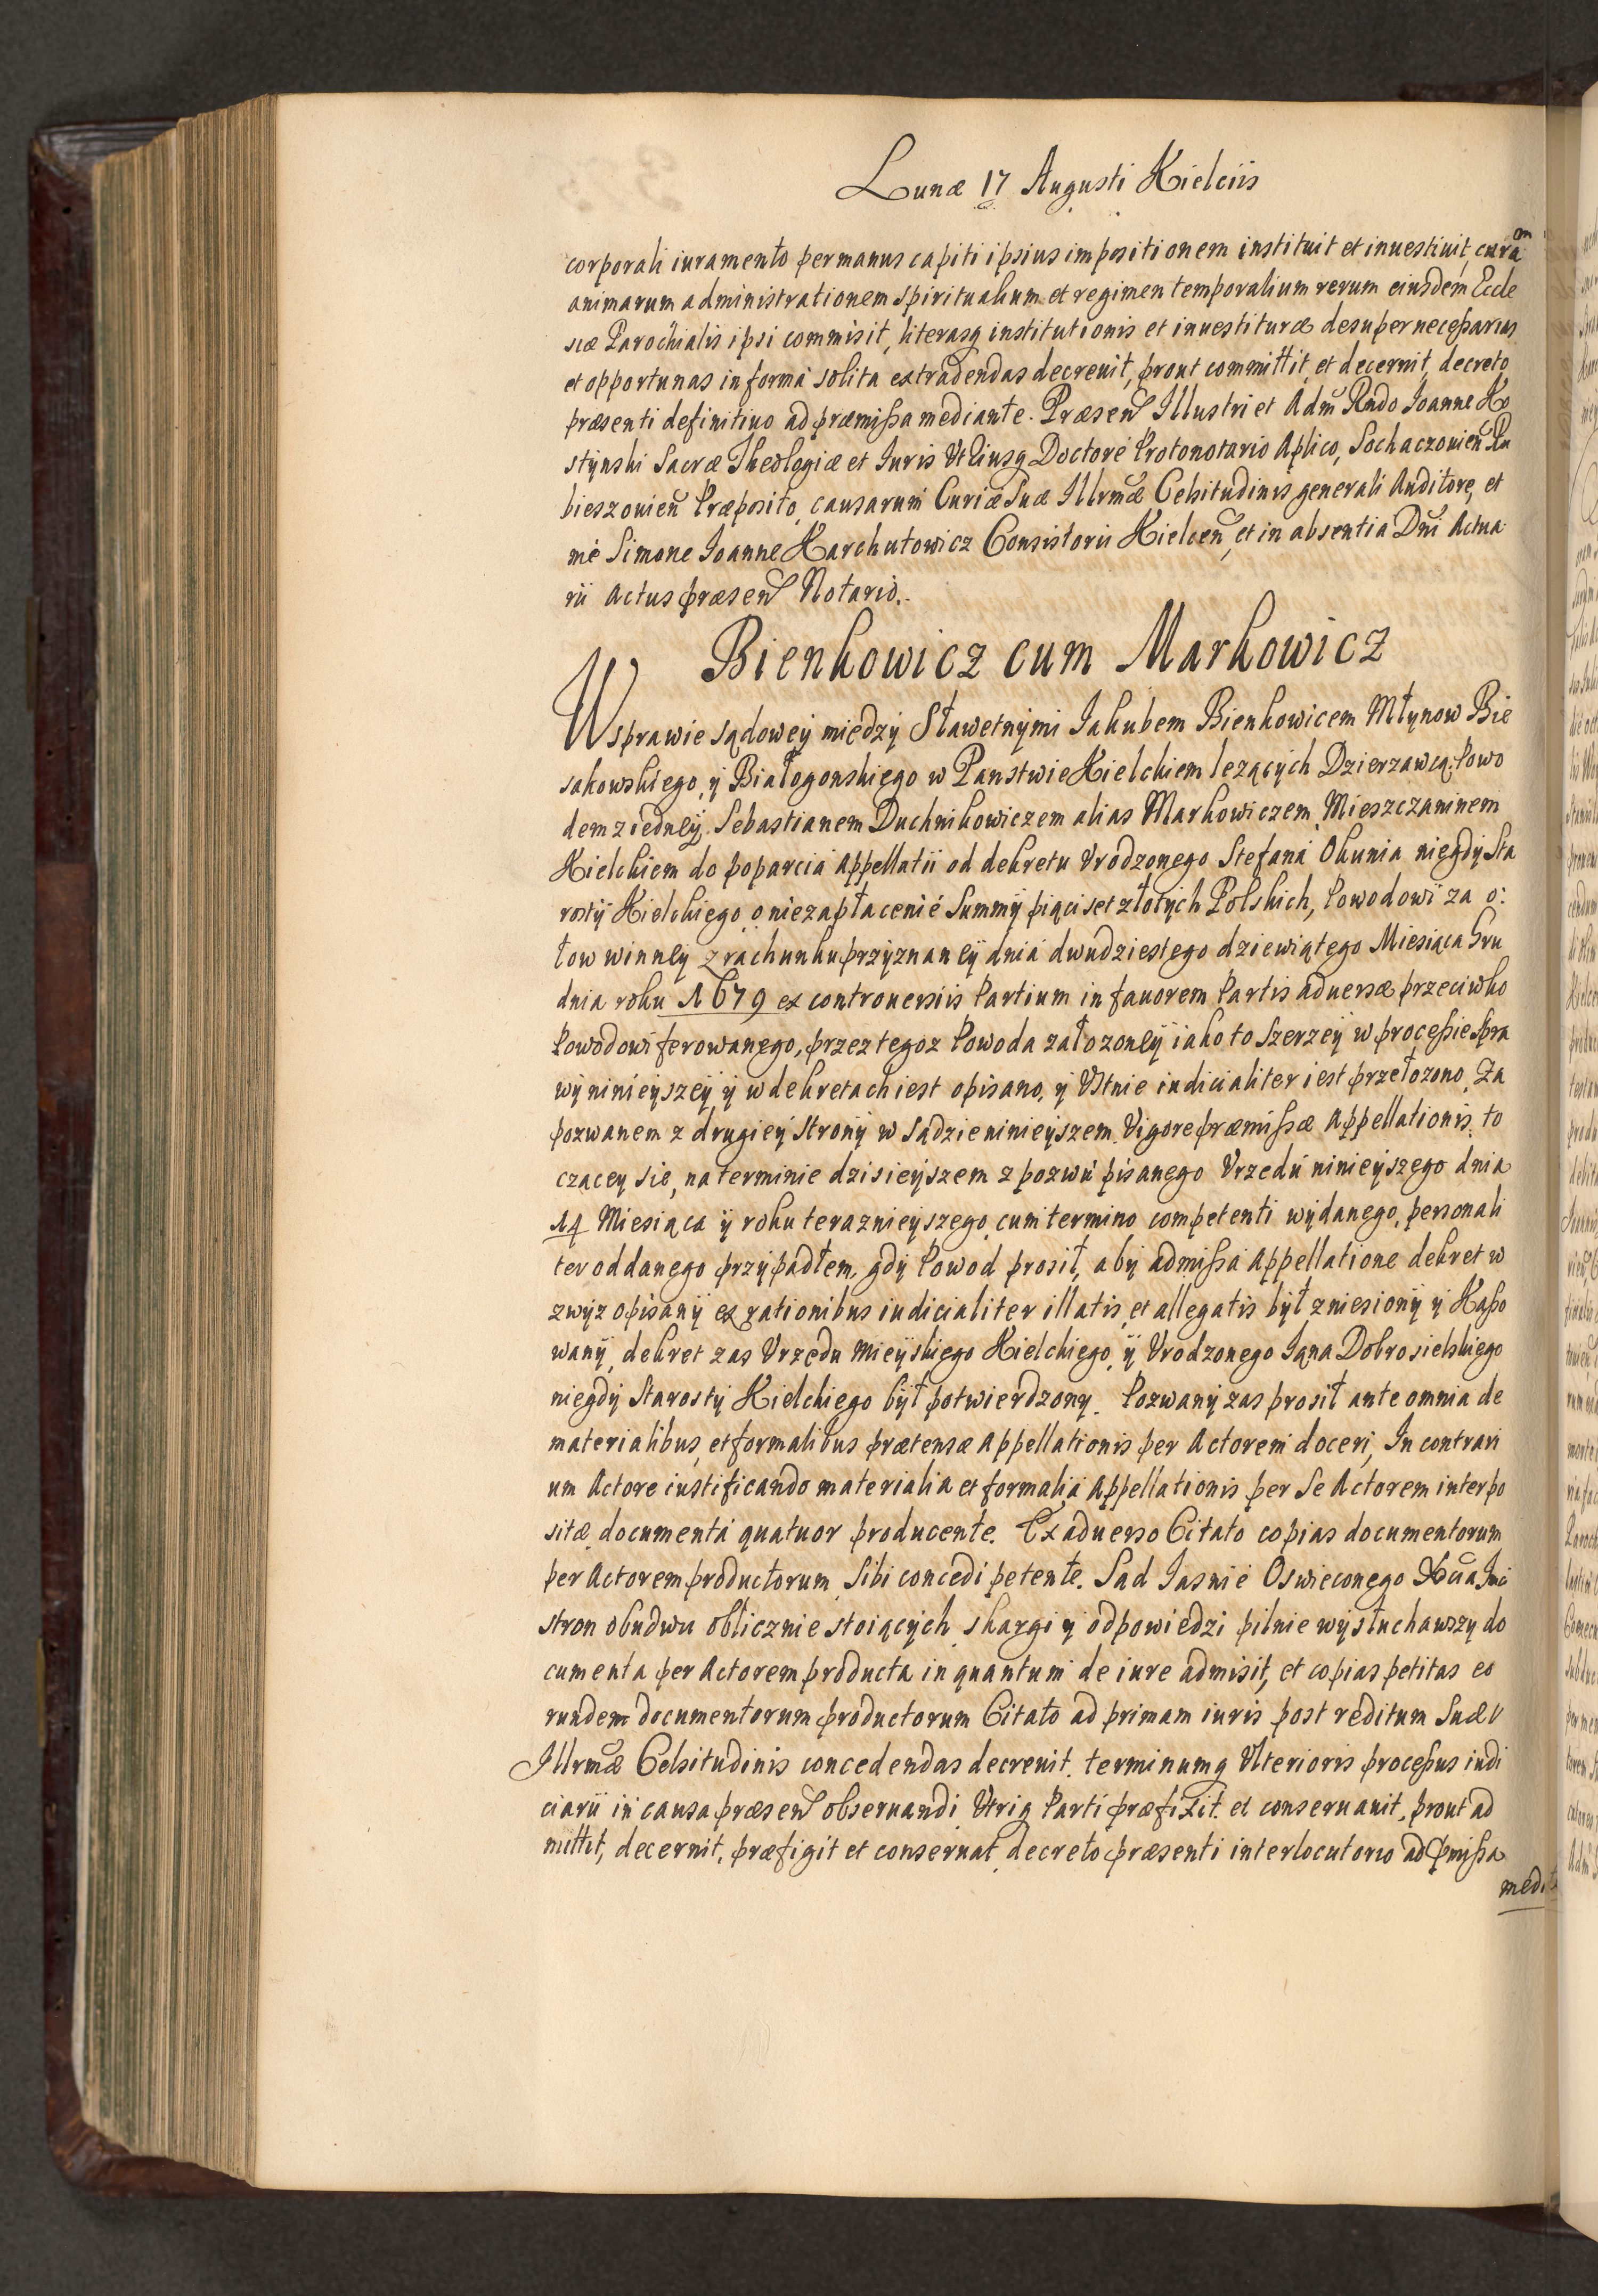 Lunæ 17 Augusti Kielciis
corporali iuramento per manus capiti ipsius impositionem instituit et inuestiuit, curam
animarum administrationem spiritualium et regimen temporalium rerum eiusdem Eccle
siæ Parochialis ipsi commisit, literasq institutionis et inuestituræ desuper necessarias
et opportunas in forma solita extradendas decreuit, prout committit, et decernit, decreto
præsenti definitiuo ad præmissa mediante. Præsen Illustri et Adm Rndo Joanne Ko
stynski Sacræ Theologiæ et Iuris Vtriusq Doctore Protonotario Aplico, Sochaczouien Ru
bieszouien Præposito, causarum Curiæ Suæ Illrmæ Celsitudinis generali Auditore, et
me Simone Joanne Karchutowicz Consistorii Kielcen, et in absentia Dni Actua
rii Actus præsen Notario.
Bienkowicz cum Markowicz
W sprawie sądowey między Sławetnymi Jakubem Bienkowicem Młynow Bie
sakowskiego, y Białogonskiego w Panstwie Kielckiem lezących Dzierzawcą Powo
dem z iedney, Sebastianem Duchnikowiczem alias Markowiczem, Mieszczaninem
Kielckiem do poparcia Appellatii od dekretu Vrodzonego Stefana Okunia niegdy Sta
rosty Kielckiego o niezapłacenie Summy piąciset złotych Polskich, Powodowi za o:
łow winney z rachunku przyznaney dnia dwudziestego dziewiątego Miesiąca Gru
dnia roku 1679 ex controuersiis Partium in fauorem Partis aduersæ przeciwko
Powodowi ferowanego, przez tegoz Powoda załozoney iako to szerzey w processie spra
wy ninieyszey y w dekretach iest opisano, y Vstnie iudicialiter iest przełozono, Za
pozwanem z drugiey strony w Sądzie ninieyszem Vigore præmissæ Appellationis to
czacey sie, na terminie dzisieyszem z pozwu pisanego Vrzedu ninieyszego dnia
14 Miesiąca y roku teraznieyszego cum termino competenti wydanego, personali
ter oddanego przypadłem, gdy Powod prosił, aby admissa Appellatione dekret w
zwyz opisany ex rationibus iudicialiter illatis, et allegatis był zniesiony y Kasso
wany, dekret zas Vrzędu Mieyskiego Kielckiego, y Vrodzonego Jana Dobrosielskiego
niegdy Starosty Kielckiego był potwierdzony. Pozwany zas prosił ante omnia de
materialibus, et formalibus prætensæ Appellationis per Actorem doceri, In contrari
um Actore iustificando materialia et formalia Appellationis per Se Actorem interpo
sitæ documenta quatuor producente. Ex aduerso Citato copias documentorum
per Actorem productorum Sibi concedi petente. Sad Jasnie Oswieconego
stron obudwu oblicznie stoiących skargi y odpowiedzi pilnie wysłuchawszy do
cumenta per Actorem producta in quantum de iure admisit, et copias petitas eo
rundem documentorum productorum Citato ad primam iuris post reditum Suæ
Illrmæ Celsitudinis concedendas decreuit, terminumq Vlterioris processus iudi
ciarii in causa præsen obseruandi Vtriq Parti præfixit et conseruauit, prout ad
mittit, decernit, præfigit et conseruat decreto præsenti interlocutorio ad pmissa